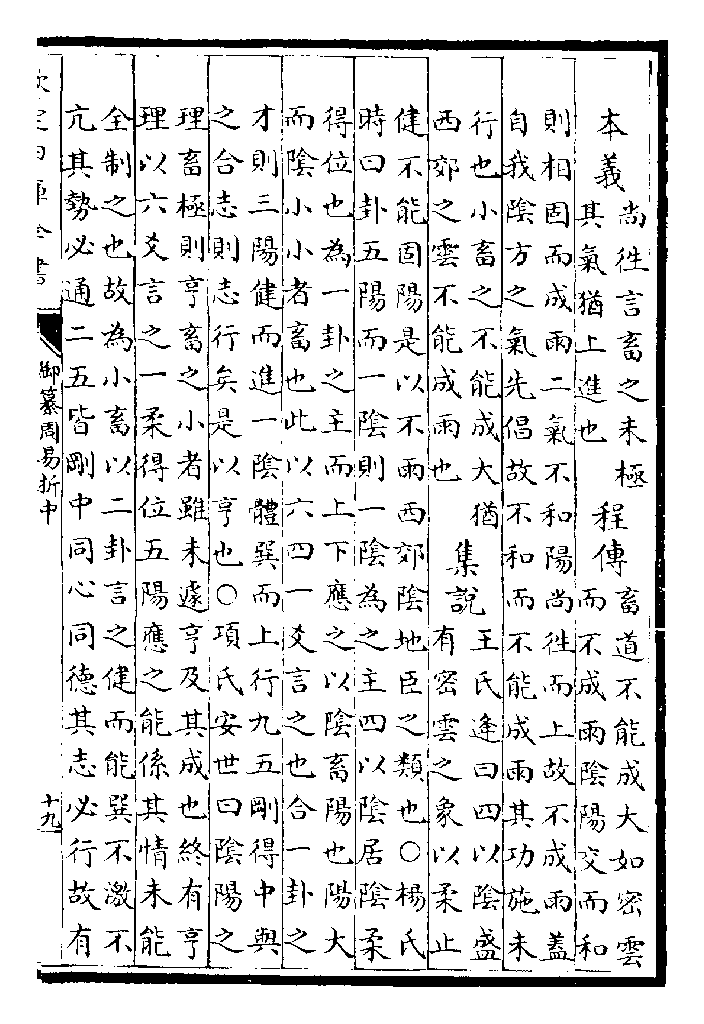 本義
尚徃言畜之未極
其氣猶上進也
程傳
畜道不能成大如密雲
而不成雨陰陽交而和
則相固而成雨二氣不和陽尚徃而上故不成雨蓋
自我陰方之氣先倡故不和而不能成雨其功施未
行也小畜之不能成大猶
西郊之雲不能成雨也
集說
王氏逢曰四以陰盛
有密雲之象以柔止
健不能固陽是以不雨西郊陰地臣之類也○楊氏
時曰卦五陽而一陰則一陰為之主四以陰居陰柔
得位也為一卦之主而上下應之以陰畜陽也陽大
而陰小小者畜也此以六四一爻言之也合一卦之
才則三陽健而進一陰體巽而上行九五剛得中與
之合志則志行矣是以亨也○項氏安世曰陰陽之
理畜極則亨畜之小者雖未遽亨及其成也終有亨
理以六爻言之一柔得位五陽應之能係其情未能
全制之也故為小畜以二卦言之健而能巽不激不
亢其勢必通二五皆剛中同心同德其志必行故有
欽定四庫全書
御纂周易折中
十九